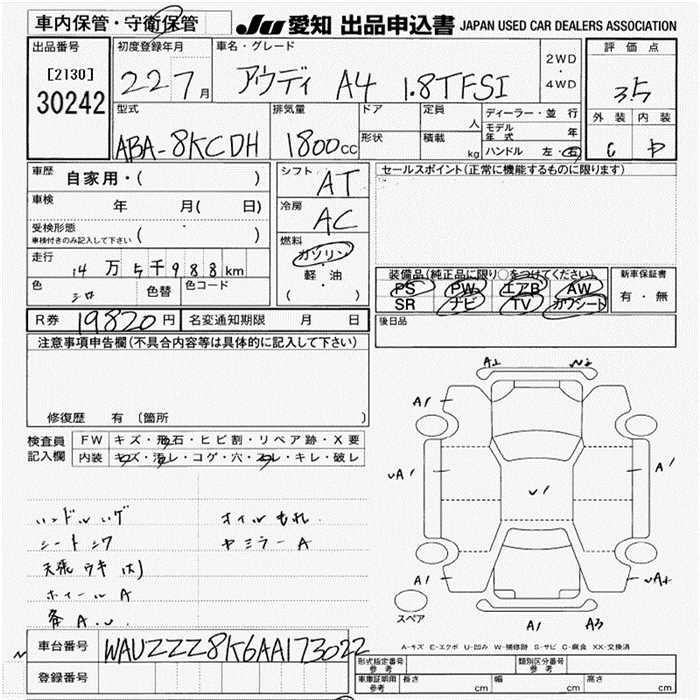 車内保管・守衛保管
JU 愛知 出品申込書 JAPAN USED CAR DEALERS ASSOCIATION
出品番号
[2130]
30242
初度登録年月
22 7月
車名・グレード
アウディ A4 1.8TFSI
2WD
・
4WD
評価点
3.5
外装 内装
C D
型式
ABA-8KCDH
排気量
1800cc
ドア
形状
定員
人
積載
kg
ディーラー・並行
モデル年式 年
ハンドル 左・右
車歴
自家用・( )
車検
年 月( 日)
受検形態
車検付きのみ記入して下さい ( )
走行
14万5千988km
色
シロ
色替
色コード
シフト
AT
冷房
AC
燃料
ガソリン
・
軽・油
( )
セールスポイント(正常に機能するものに限ります)
装備品(純正品に限り○をつけてください)
PS PW エアB AW
SR ナビ TV カワシート
新車保証書
有・無
後日品
R券 19820円
名変通知期限 月 日
注意事項申告欄(不具合内容等は具体的に記入して下さい)
修復歴 有 〔箇所 〕
検査員
記入欄
FW キズ・飛石・ヒビ割・リペア跡・X要
内装 キズ・汚レ・コゲ・穴・スレ・キレ・破レ
オイルもれ
シート
ホイールA
A2
A1
A1
A1
A1
A3
スペア
A-キズ E-エクボ U-凹み W-補修跡 S-サビ C-腐食 XX-交換済
車台番号
WAUZZZ8K6AA173022
登録番号
形式指定番号
参考
類別区分番号
参考
車庫証明用
参考
長さ cm
幅 cm
高さ cm